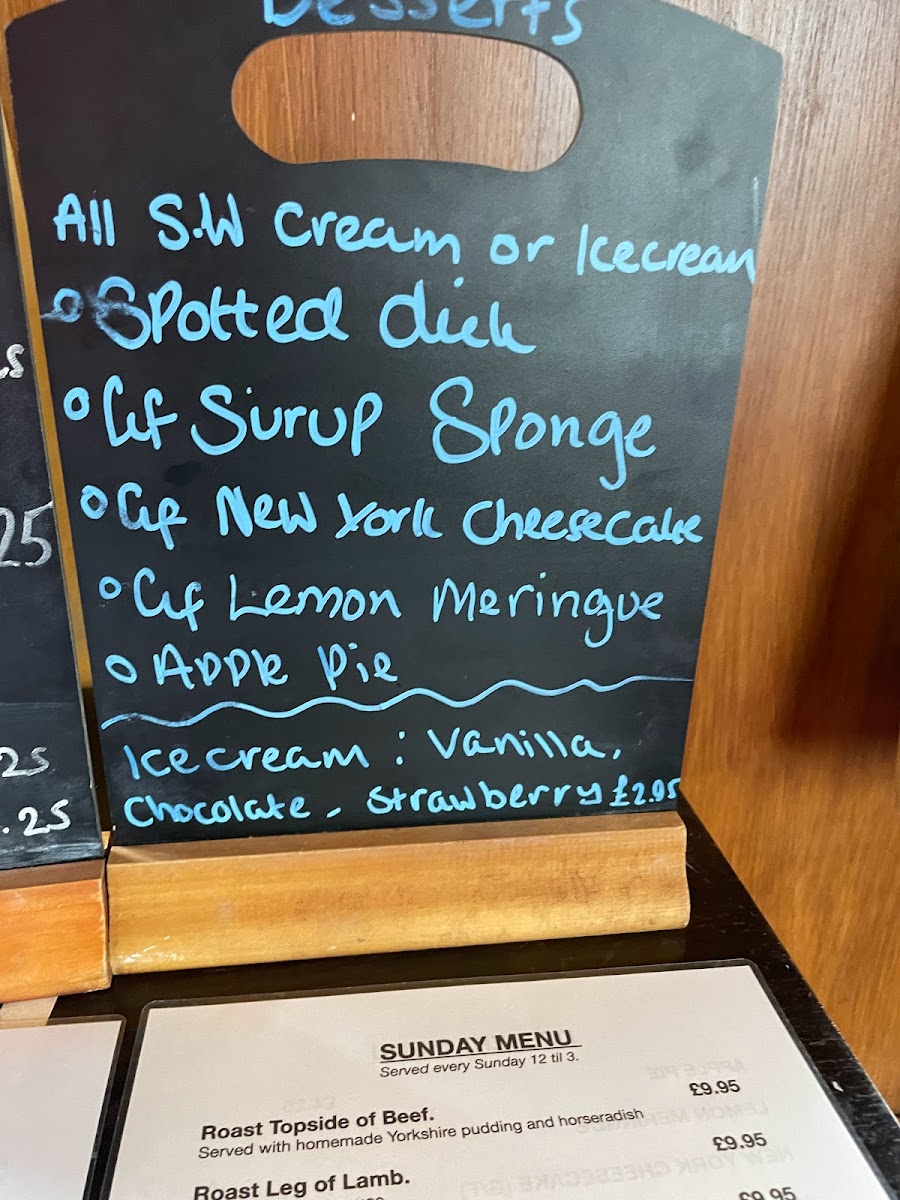 Desserts
All S.W Cream or Icecream
Spotted dick
Gf Sirup Sponge
Gf New York Cheesecake
Gf Lemon Meringue
Apple Pie
Icecream : Vanilla,
Chocolate, Strawberry £2.95
25
25
.25
SUNDAY MENU
Served every Sunday 12 til 3.
£9.95
Roast Topside of Beef.
Served with homemade Yorkshire pudding and horseradish
£9.95
Roast Leg of Lamb.
£9.95
APPLE PIE
LEMON MERINGUE
NEW YORK CHEESECAKE